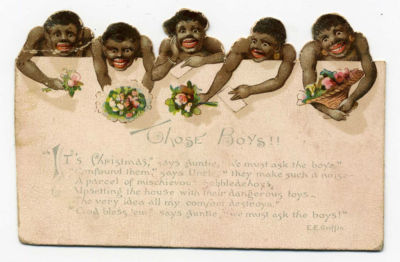 Those Boys!!
"It's Christmas," says auntie, "we must ask the boys."
"Confound them," says Uncle, "they make such a noise
A parcel of mischievous hobbledehoys,
Upsetting the house with their dangerous toys—
The very idea all my comfort destroys."
"God bless 'em," says auntie, "we must ask the boys!"
E.E. Griffin